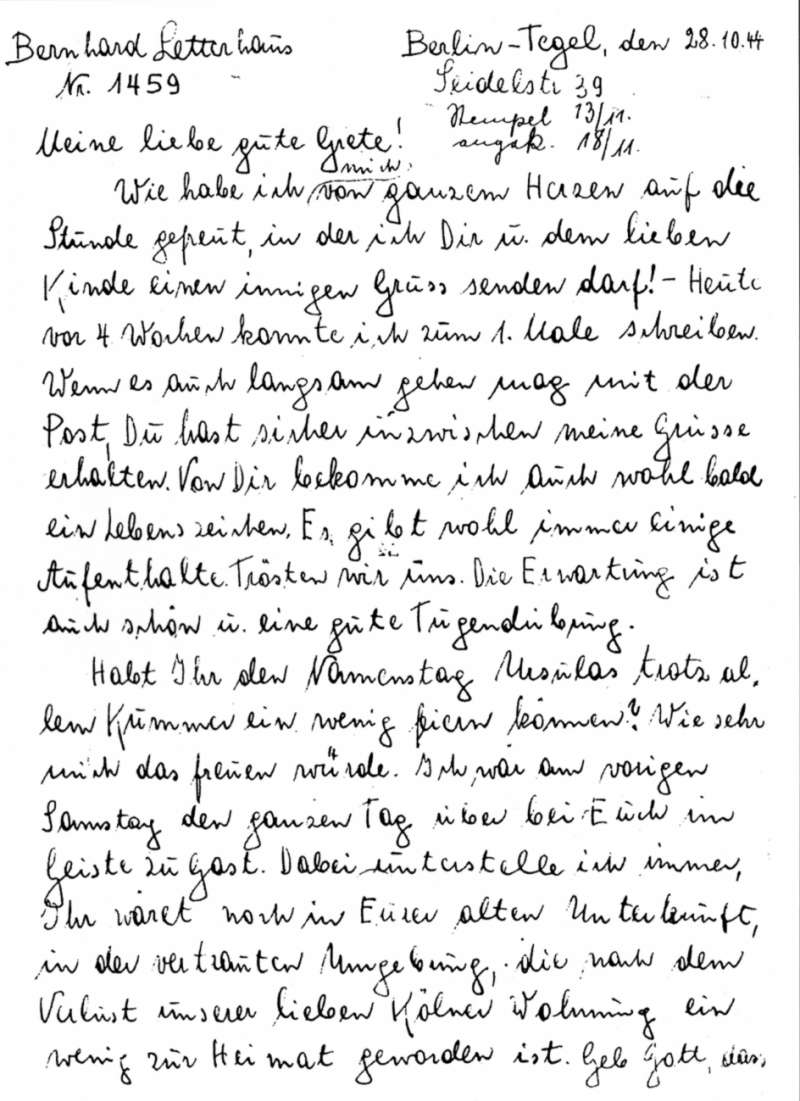 Bernhard Letterhaus
Nr. 1459
Berlin-Tegel, den 28.10.44
Seidelstr 39
Stempel 13/11.
angek. 18/11.
Meine liebe gute Grete!
mich
Wie habe ich von ganzem Herzen auf die
Stunde gefreut, in der ich Dir u. dem lieben
Kinde einen innigen Gruss senden darf! – Heute
vor 4 Wochen konnte ich zum 1. Male schreiben.
Wenn es auch langsam gehen mag mit der
Post, Du hast sicher inzwischen meine Grüsse
erhalten. Von Dir bekomme ich auch wohl bald
ein Lebenszeichen. Es gibt wohl immer einige
Aufenthalte. Trösten wir uns. Die Erwartung ist
auch schön u. eine gute Tugendübung.
Habt Ihr den Namenstag Ursulas trotz al-
lem Kummer ein wenig feiern können? Wie sehr
mich das freuen würde. Ich war am vorigen
Samstag den ganzen Tag über bei Euch im
Geiste zu Gast. Dabei unterstelle ich immer,
Ihr wäret noch in Eurer alten Unterkunft,
in der vertrauten Umgebung, die nach dem
Verlust unserer lieben Kölner Wohnung ein
wenig zur Heimat geworden ist. Geb Gott, dass